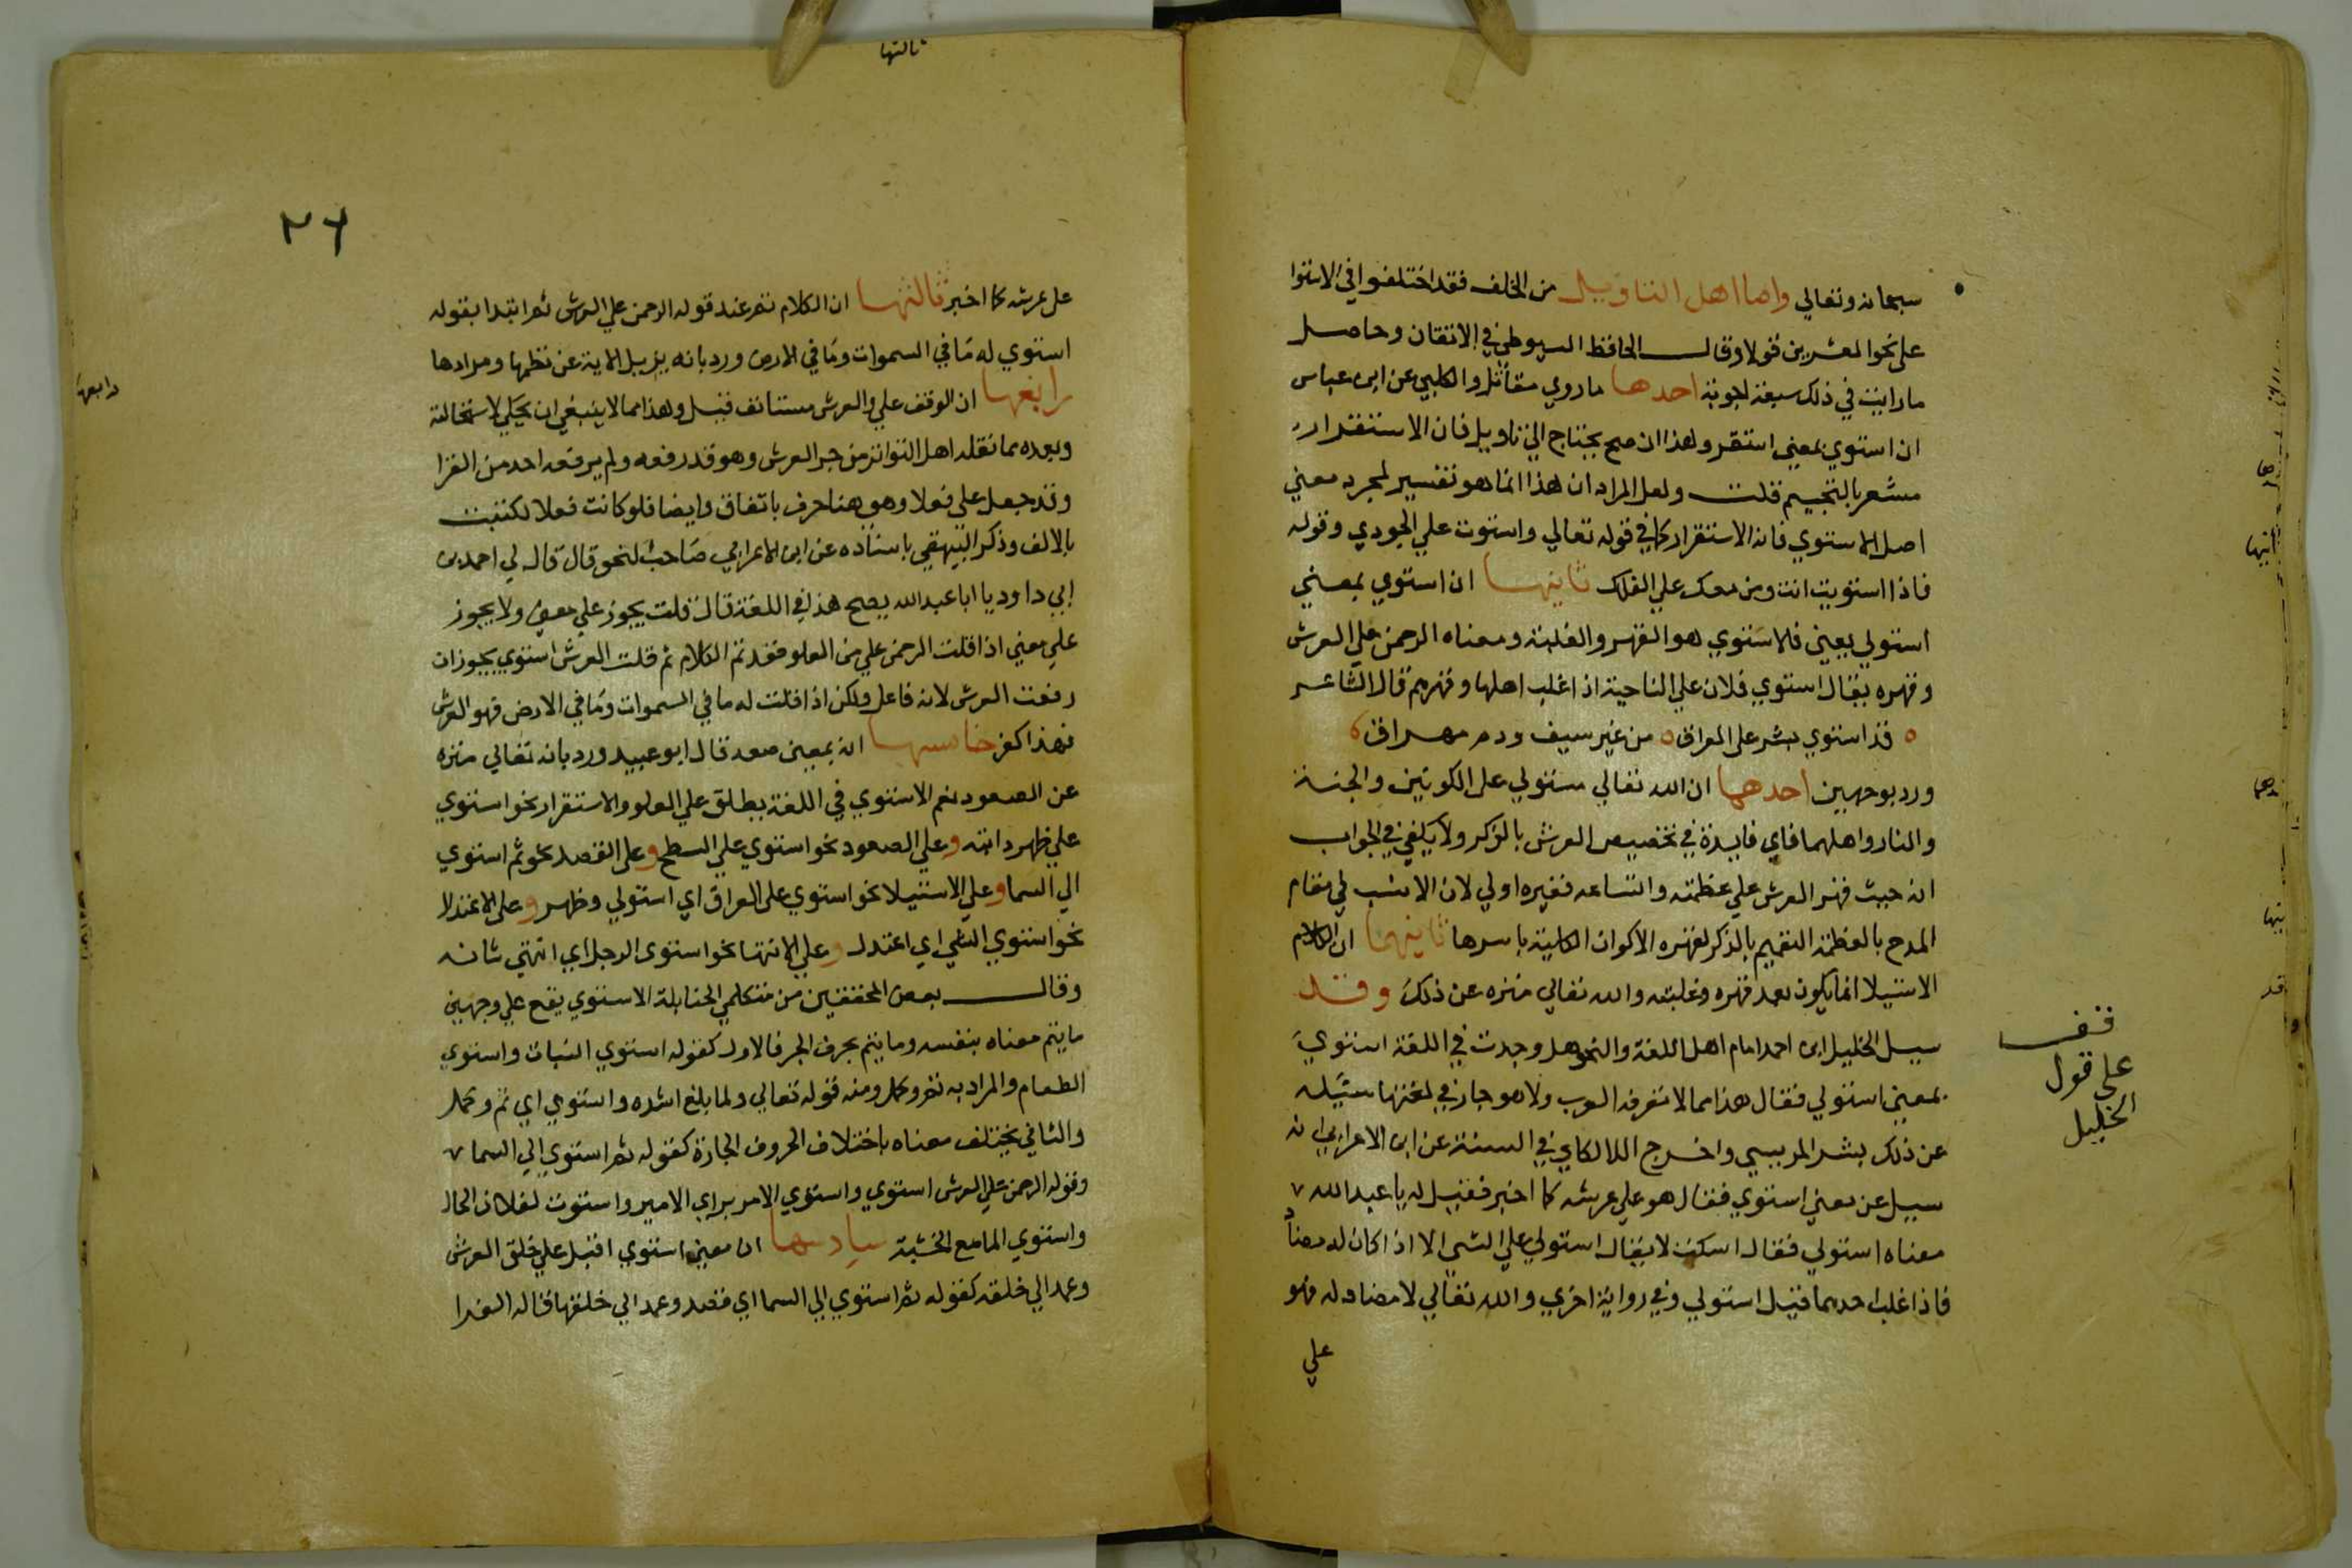 سبحانه وتعالي واما اهل التاويل من الخلف فقد اختلفوا في الاستوا
على نحو العشرين قولا وقال الحافظ السيوطي في الاتقان وحاصل
ما رايت في ذلك سبعة اجوبة احدها ما روي مقاتل والكلبي عن ابن عباس
ان استوي بمعني استقر وهذا ان صح يحتاج الي تاويل فان الاستقرار
مشعر بالتجسيم قلت ولعل المراد ان هذا انما هو تفسير لمجرد معني
اصل الاستوي فانه الاستقرار كما في قوله تعالي واستوت علي الجودي وقوله
فاذا استويت انت ومن معك علي الفلك ثانيها ان استوي بمعني
استولي يعني فالاستوي هو القهر والغلبة ومعناه الرحمن علي العرش
وقهره يقال استوي فلان علي الناحية اذا غلب اهلها وقهرهم قال الشاعر
قد استوي بشر على العراق من غير سيف ودم مهراق
ورد بوجهين احدهما ان الله تعالي مستولي على الكونين والجنة
والنار واهلهما فاي فايدة في تخصيص العرش بالذكر ولا يكفي في الجواب
انه حيث قهر العرش علي عظمته واتساعه فغيره اولي لان الانسب في مقام
المدح بالعظمة التعميم بالذكر لقهره الاكوان الكلية باسرها ثانيهما ان الكلام
الاستيلا انما يكون بعد قهره وغلبته والله تعالي منزه عن ذلك وقد
سيل الخليل ابن احمد امام اهل اللغة والنحو هل وجدت في اللغة استوي
بمعني استولي فقال هذا مما لا تعرفه العرب ولا هو جاز في لغتها سيله
عن ذلك بشر المريسي واخرج اللالكاي في السنة عن ابن الاعرابي انه
سيل عن معني استوي فقال هو علي عرشه كما اخبر فقيل له يا عبد الله
معناه استولي فقال اسكت لا يقال استولي علي الشي الا اذا كان له مضاد
فاذا غلب احدهما قيل استولي وفي رواية اخري والله تعالي لا مضاد له فهو
علي
قف
على قول
الخليل
ثالثها
٢٦
على عرشه كما اخبر ثالثها ان الكلام تم عند قوله الرحمن علي العرش ثم ابتدا بقوله
استوي له ما في السموات وما في الارض ورد بانه يزيل الاية عن نظمها ومرادها
رابعها ان الوقف علي والعرش مستانف قيل وهذا مما لا ينبغي ان يحكي لاستحالته
وبعده مما نقله اهل التواتر من جر العرش وهو قد رفعه ولم يرفعه احد من القرا
وقد جعل على فعلا وهو هنا حرف باتفاق وايضا فلو كانت فعلا لكتبت
بالالف وذكر البيهقي باسناده عن ابن الاعرابي صاحب النحو قال قال لي احمد بن
ابي داود يا ابا عبد الله يصح هذا في اللغة قال قلت يجوز علي معني ولا يجوز
علي معني اذا قلت الرحمن علي من العلو فقد تم الكلام ثم قلت العرش استوي يجوز ان
رفعت العرش لانه فاعل ولكن اذا قلت له ما في السموات وما في الارض فهو العرش
فهذا كفر خامسها انه بمعني صعد قال ابو عبيد ورد بانه تعالي منزه
عن الصعود نعم الاستوي في اللغة يطلق علي العلو والاستقرار نحو استوي
علي ظهر دابته وعلي الصعود نحو استوي علي السطح وعلى القصد نحو ثم استوي
الي السما وعلي الاستيلا نحو استوي على العراق اي استولي وظهر وعلى الاعتدال
نحو استوي الشي اي اعتدل وعلي الانتها نحو استوي الرجل اي انتهي شانه
وقال بعض المحققين من متكلمي الحنابلة الاستوي يقع علي وجهين
ما يتم معناه بنفسه وما يتم بحرف الجر فالاول كقوله استوي النبات واستوي
الطعام والمراد به تم وكمل ومنه قوله تعالي ولما بلغ اشده واستوي اي تم وكمل
والثاني يختلف معناه باختلاف الحروف الجارة كقوله ثم استوي الي السما
وقوله الرحمن علي العرش استوي واستوي الامر براي الامير واستوت لفلان الحال
واستوي الما مع الخشبة سادسها ان معني استوي اقبل علي خلق العرش
وعمد الي خلقه كقوله ثم استوي الي السما اي قصد وعمد الي خلقها قاله الفرا
رابعها